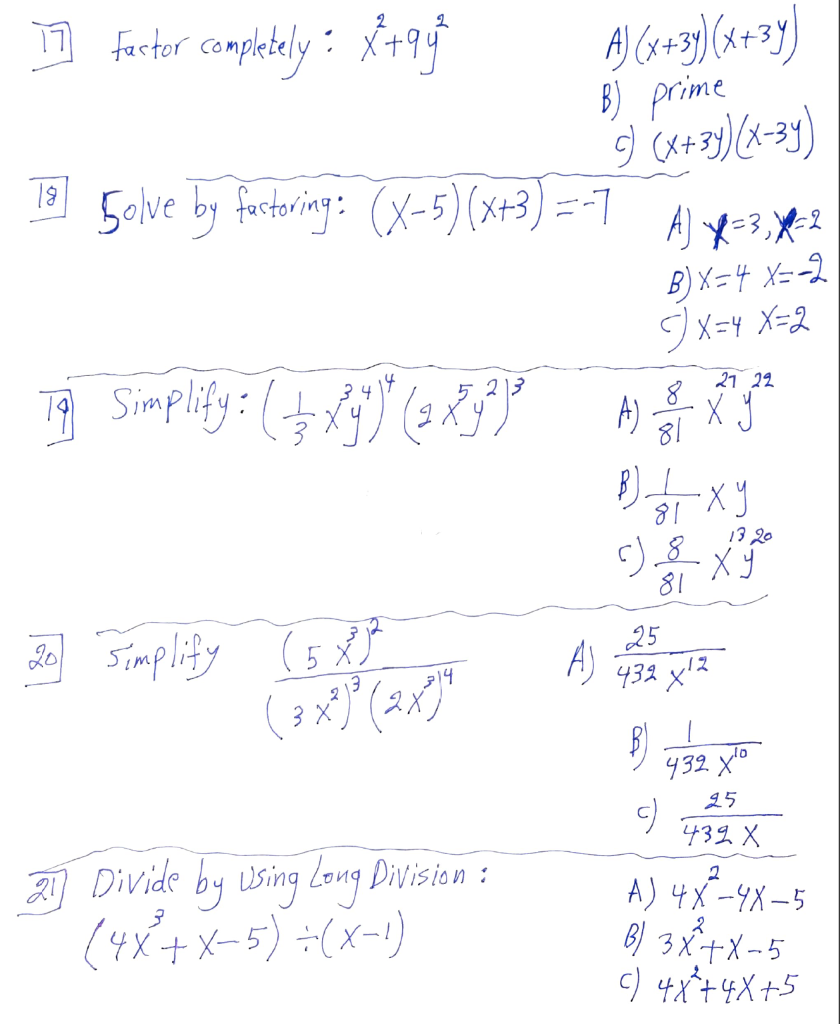 17 Factor completely: x²+9y² A) (x+3y)(x+3y)
B) prime
C) (x+3y)(x-3y)
18 Solve by factoring: (x-5)(x+3) = -7 A) x=3, x=2
B) x=4 x=-2
C) x=4 x=2
19 Simplify: (1/3 x³y⁴)⁴ (2x⁵y²)³ A) 8/81 x²⁷y²²
B) 1/81 xy
C) 8/81 x¹³y²⁰
20 Simplify (5x³)² / (3x²)³(2x³)⁴ A) 25/432x¹²
B) 1/432x¹⁰
C) 25/432x
21 Divide by using Long Division: A) 4x²-4x-5
(4x³+x-5) ÷ (x-1) B) 3x²+x-5
C) 4x²+4x+5